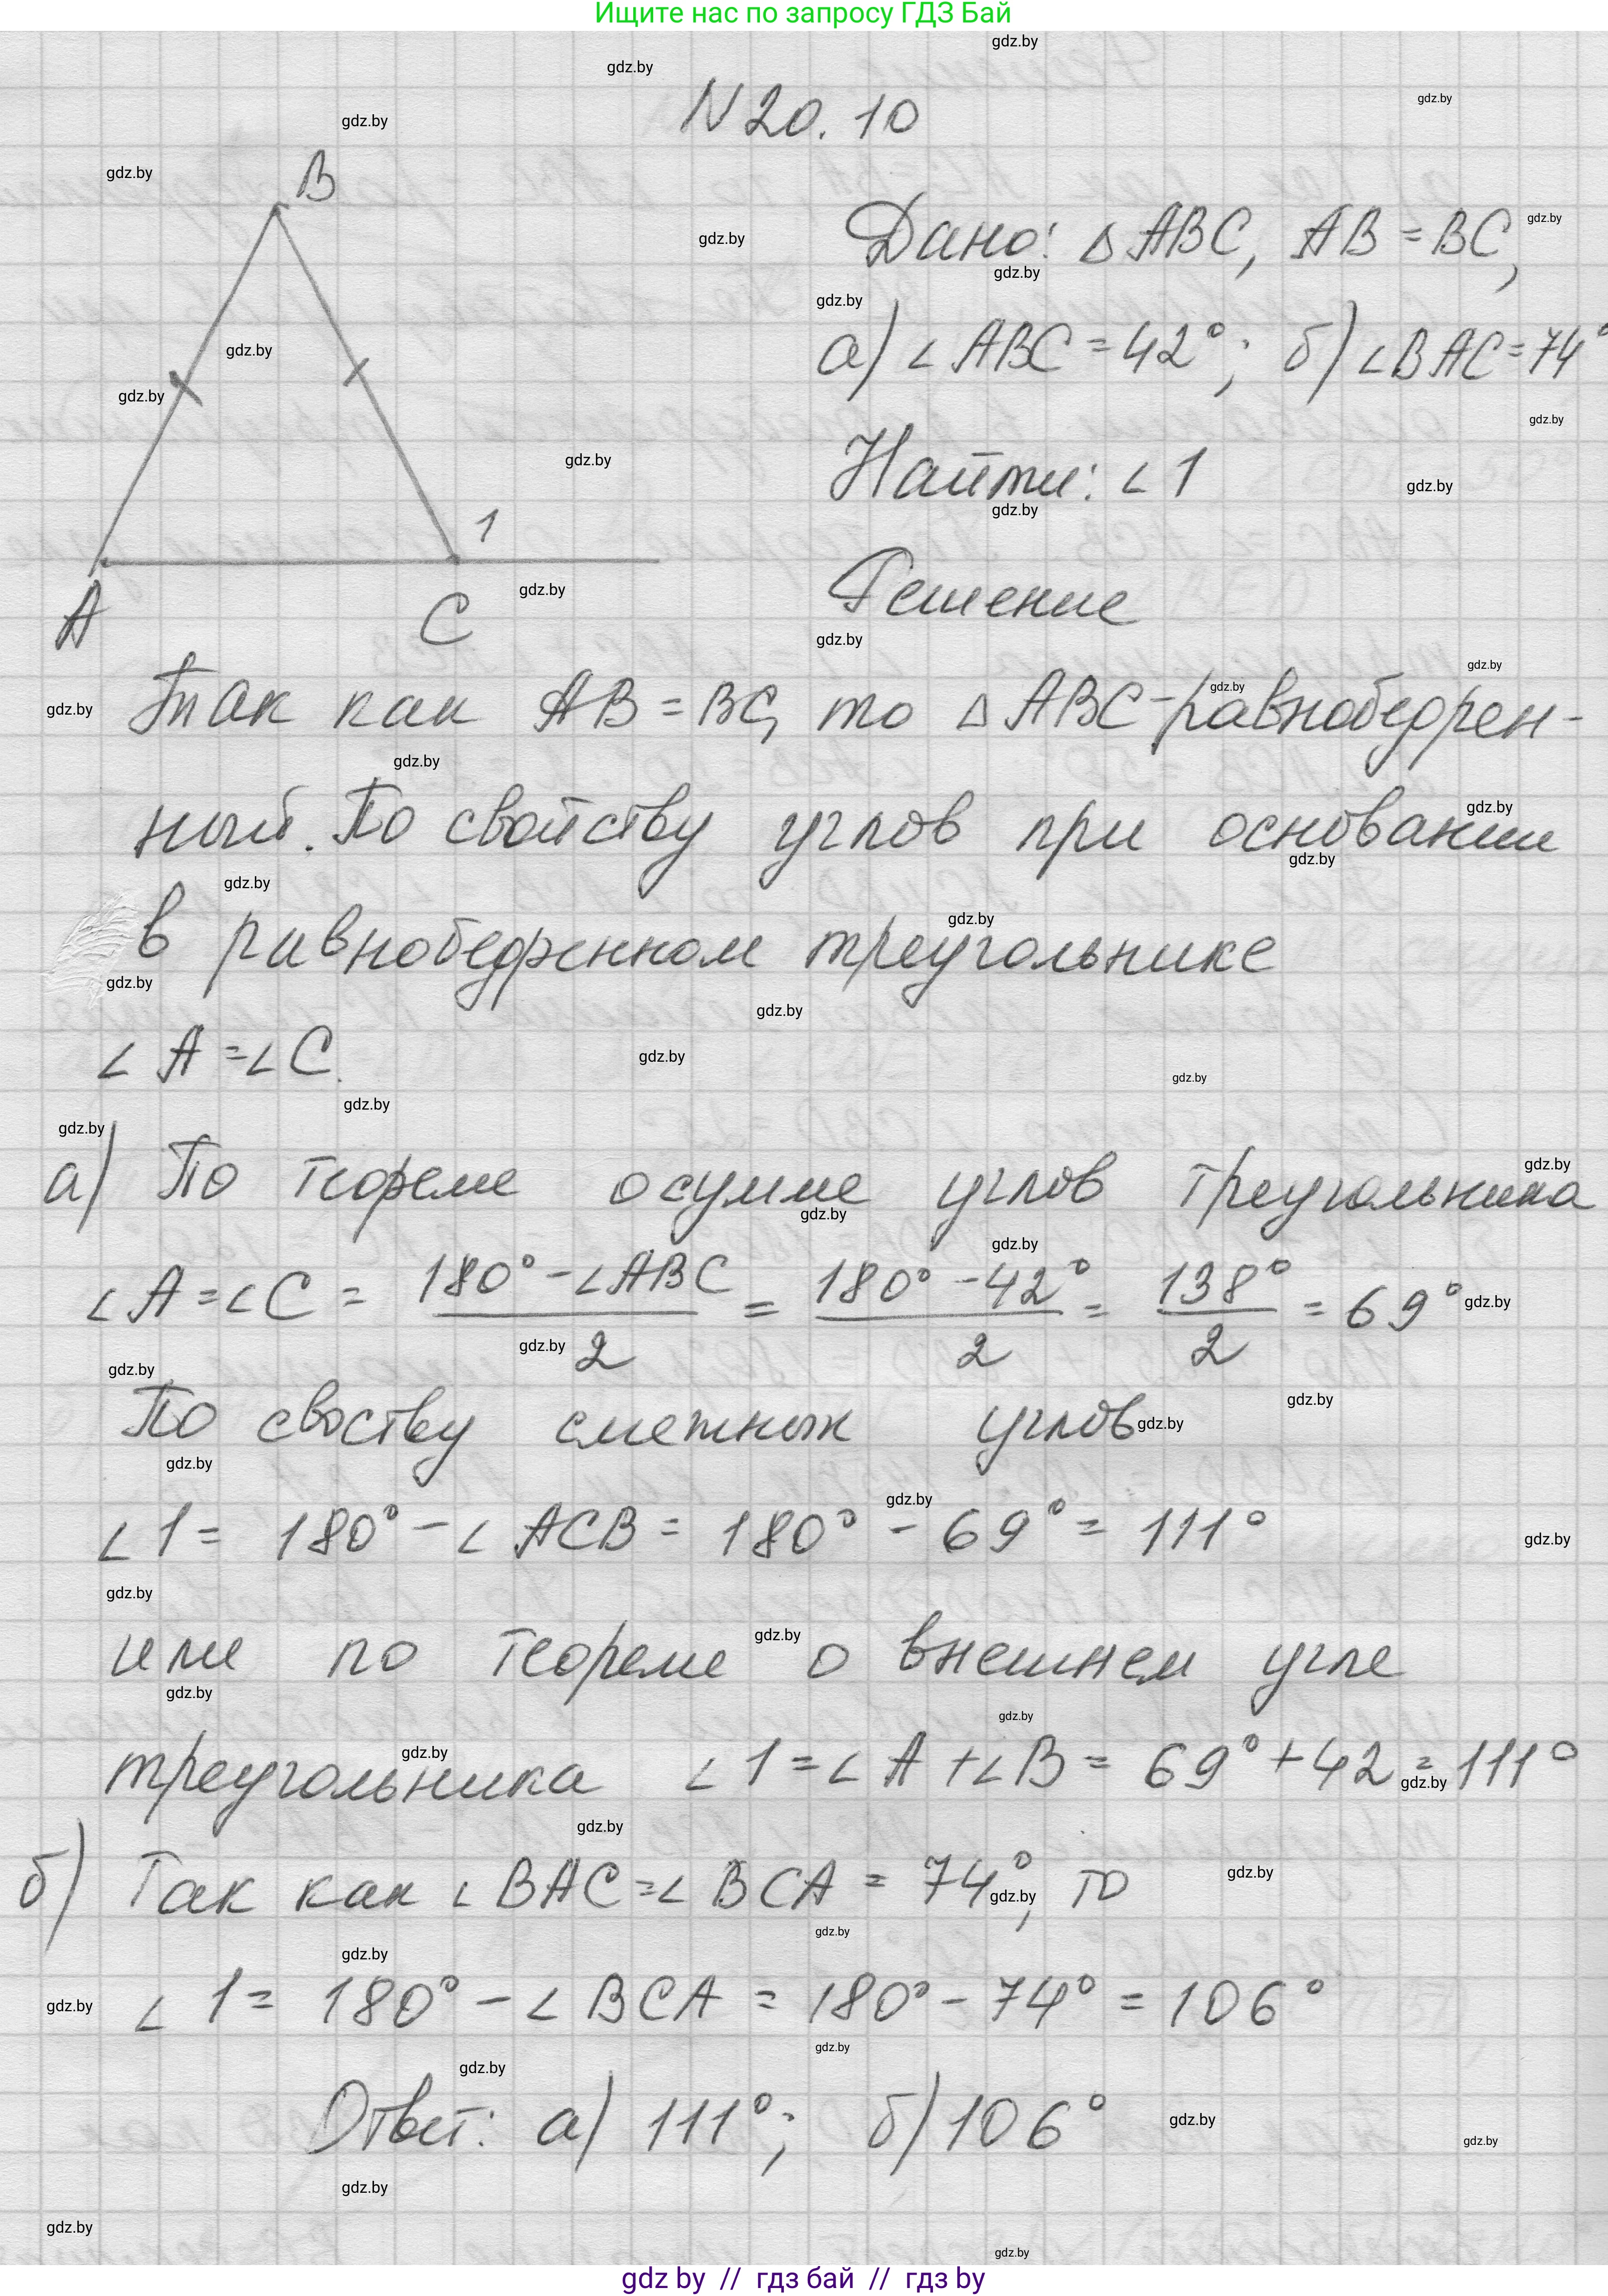 Ищите нас по запросу ГДЗ Бай
N 20. 10
B
Дано: △ ABC, AB = BC,
а) ∠ ABC = 42°; б) ∠BAC = 74°
Найти: ∠ 1
1
A
C
Решение
Так как AB = BC, то △ ABC - равнобедрен-
ный. По свойству углов при основании
в равнобедренном треугольнике
∠ A = ∠ C.
а) По теореме о сумме углов треугольника
∠ A = ∠ C = (180° - ∠ABC)/2 = (180° - 42°)/2 = 138°/2 = 69°
По своству смежных углов
∠ 1 = 180° - ∠ ACB = 180° - 69° = 111°
или по теореме о внешнем угле
треугольника ∠ 1 = ∠ A + ∠ B = 69° + 42 = 111°
б) Так как ∠ BAC = ∠ BCA = 74°, то
∠ 1 = 180° - ∠ BCA = 180° - 74° = 106°
Ответ: а) 111°; б) 106°
gdz.by
gdz by // гдз бай // гдз by